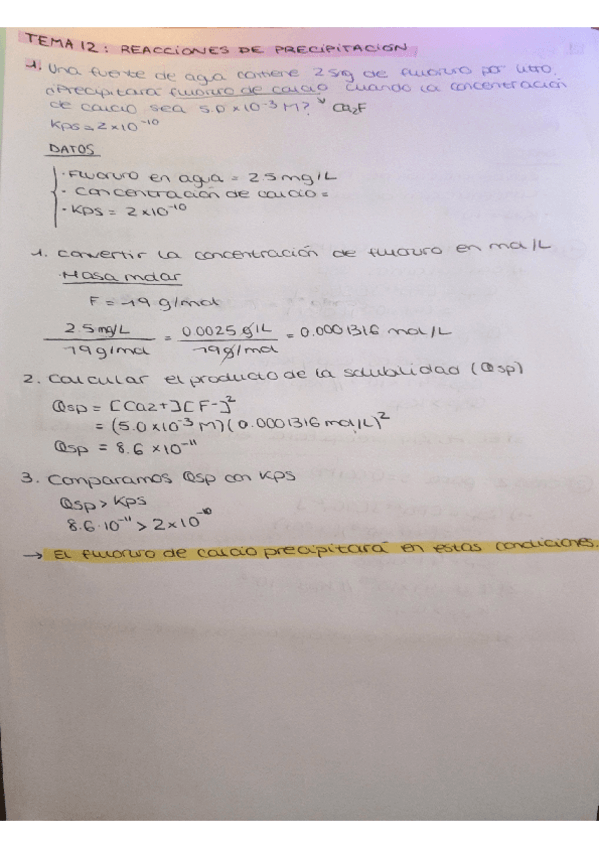 TEMA 12: REACCIONES DE PRECIPITACIÓN
1. Una fuente de agua contiene 2.5mg de fluoruro por litro.
¿Precipitará fluoruro de calcio cuando la concentración
de calcio sea 5.0 x 10-3 M? Ca2F
Kps = 2 x 10-10
DATOS
· Fluoruro en agua = 2.5 mg/L
· Concentración de calcio =
· KPS = 2 x 10-10
1. Convertir la concentración de fluoruro en mol/L
· Masa molar
F = 19 g/mol
2.5 mg/L / 19 g/mol = 0.0025 g/L / 19 g/mol = 0.0001316 mol/L
2. Calcular el producto de la solubilidad (Qsp)
Qsp = [Ca2+][F-]2
= (5.0 x 10-3 M)(0.0001316 mol/L)2
Qsp = 8.6 x 10-11
3. Comparamos Qsp con KPS
Qsp > KPS
8.6·10-11 > 2 x 10-10
→ El fluoruro de calcio precipitará en estas condiciones.